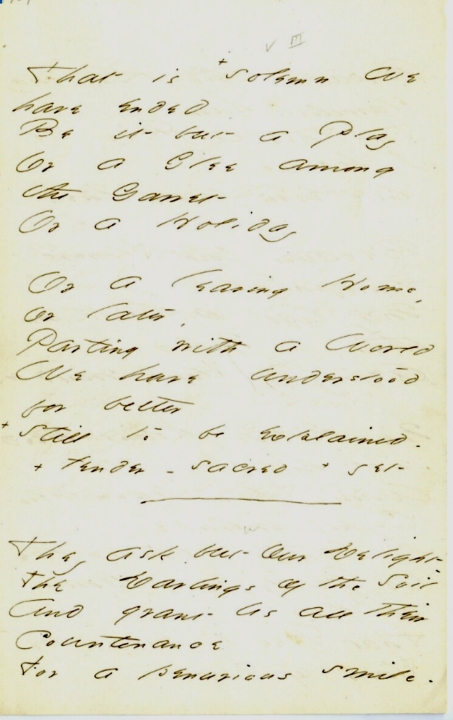 III
That is + solemn we
have ended
Be it but a Play
Or a Glee among
the Garret
Or a Holiday
Or a leaving Home,
or later,
Parting with a World
We have understood
for better
+ Still to be explained.
+ tender - sacred + set -
They ask but our Delight -
The Darlings of the Soil
And grant us all their
Countenance
For a penurious smile.